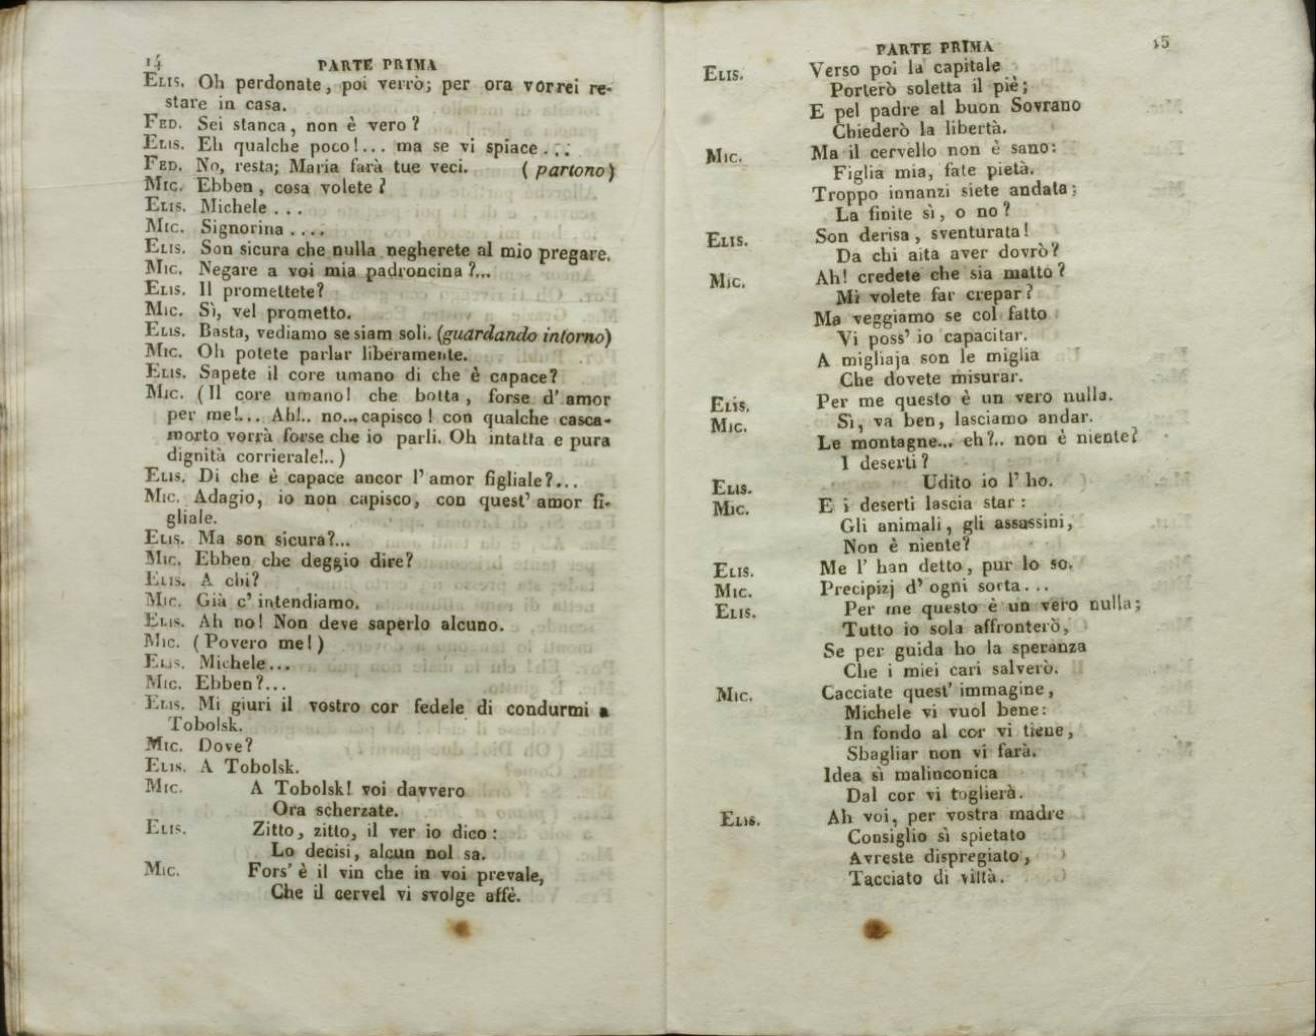 14
PARTE PRIMA
ELIS. Oh perdonate, poi verrò; per ora vorrei re-
stare in casa.
FED. Sei stanca, non è vero?
ELIS. Eh qualche poco!... ma se vi spiace...
FED. No, resta; Maria farà tue veci. (partono)
MIC. Ebben, cosa volete?
ELIS. Michele...
MIC. Signorina....
ELIS. Son sicura che nulla negherete al mio pregare.
MIC. Negare a voi mia padroncina?...
ELIS. Il promettete?
MIC. Sì, vel prometto.
ELIS. Basta, vediamo se siam soli. (guardando intorno)
MIC. Oh potete parlar liberamente.
ELIS. Sapete il core umano di che è capace?
MIC. (Il core umano! che botta, forse d' amor
per me!... Ah!.. no... capisco! con qualche casca-
morto vorrà forse che io parli. Oh intatta e pura
dignità corrierale!..)
ELIS. Di che è capace ancor l' amor figliale?...
MIC. Adagio, io non capisco, con quest' amor fi-
gliale.
ELIS. Ma son sicura?...
MIC. Ebben che deggio dire?
ELIS. A chi?
MIC. Già c' intendiamo.
ELIS. Ah no! Non deve saperlo alcuno.
MIC. (Povero me!)
ELIS. Michele...
MIC. Ebben?...
ELIS. Mi giuri il vostro cor fedele di condurmi a
Tobolsk.
MIC. Dove?
ELIS. A Tobolsk.
MIC. A Tobolsk! voi davvero
Ora scherzate.
ELIS. Zitto, zitto, il ver io dico:
Lo decisi, alcun nol sa.
MIC. Fors' è il vin che in voi prevale,
Che il cervel vi svolge affè.
PARTE PRIMA
15
ELIS. Verso poi la capitale
Porterò soletta il piè;
E pel padre al buon Sovrano
Chiederò la libertà.
MIC. Ma il cervello non è sano:
Figlia mia, fate pietà.
Troppo innanzi siete andata;
La finite sì, o no?
ELIS. Son derisa, sventurata!
Da chi aita aver dovrò?
MIC. Ah! credete che sia matto?
Mi volete far crepar?
Ma veggiamo se col fatto
Vi poss' io capacitar.
A migliaja son le miglia
Che dovete misurar.
ELIS. Per me questo è un vero nulla.
MIC. Sì, va ben, lasciamo andar.
Le montagne... eh?.. non è niente?
I deserti?
ELIS. Udito io l' ho.
MIC. E i deserti lascia star:
Gli animali, gli assassini,
Non è niente?
ELIS. Me l' han detto, pur lo so.
MIC. Precipizj d' ogni sorta...
ELIS. Per me questo è un vero nulla;
Tutto io sola affronterò,
Se per guida ho la speranza
Che i miei cari salverò.
MIC. Cacciate quest' immagine,
Michele vi vuol bene:
In fondo al cor vi tiene,
Sbagliar non vi farà.
Idea sì malinconica
Dal cor vi toglierà.
ELIS. Ah voi, per vostra madre
Consiglio sì spietato
Avreste dispregiato,
Tacciato di viltà.